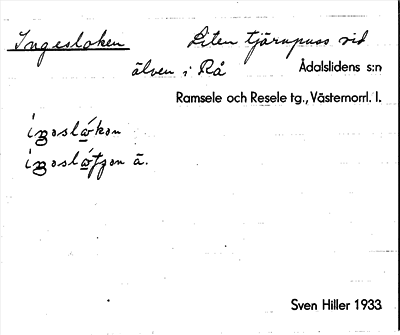 Ingesloken Liten tjärnpuss vid
älven i Rå Ådalslidens s:n
Ramsele och Resele tg., Västernorrl. l.
ä.
Sven Hiller 1933